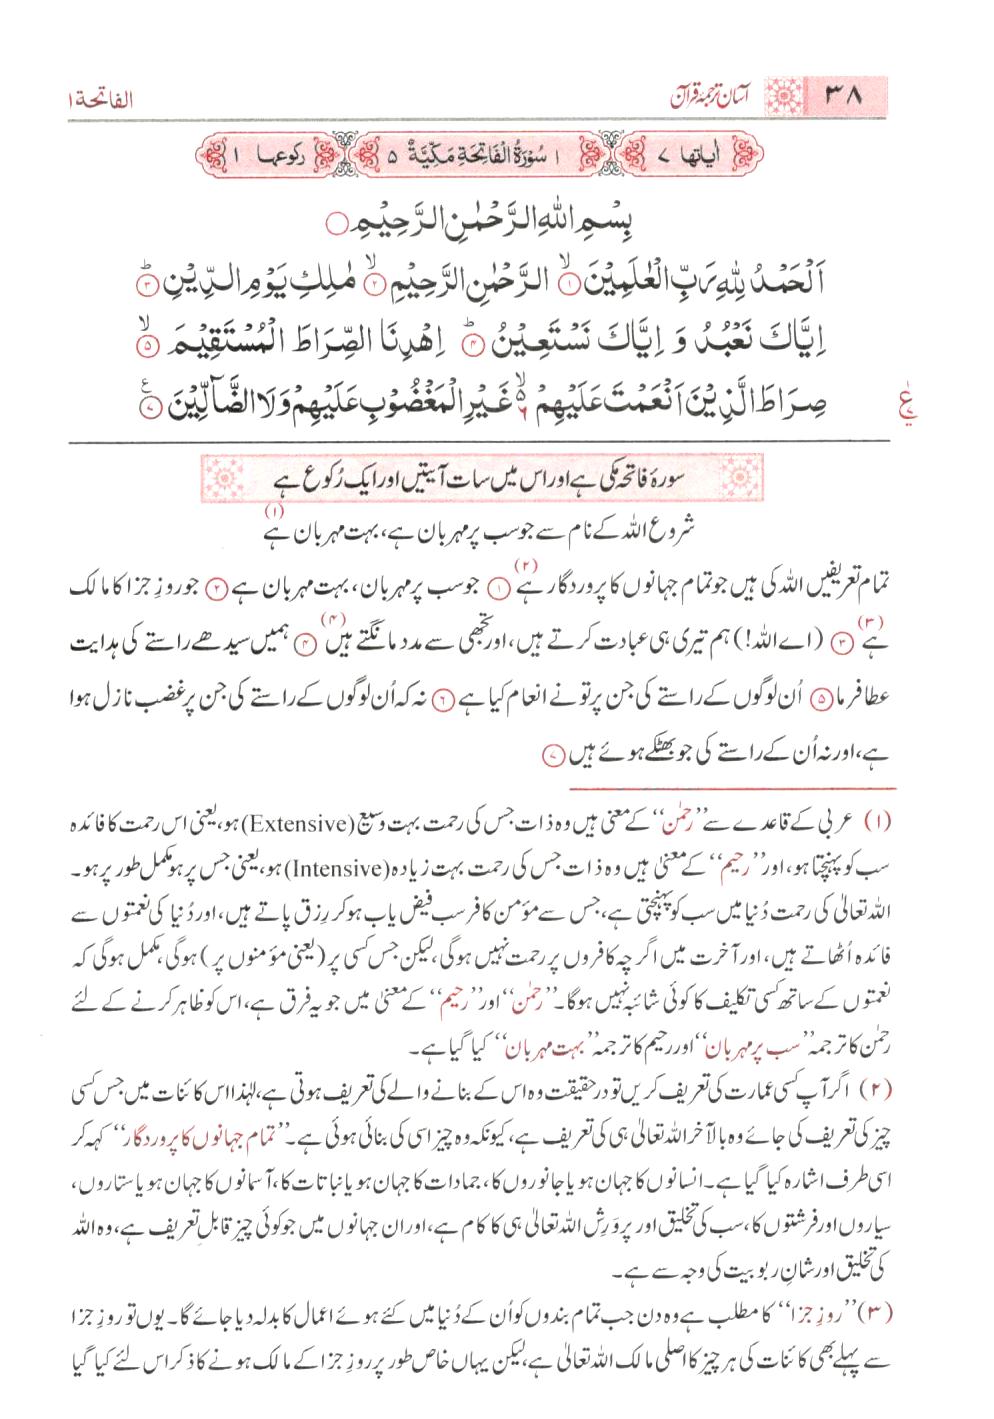 ۳۸ آسان ترجمۂ قرآن الفاتحة ۱
اٰیاتها ۷ ۱ سُوْرَةُ الْفَاتِحَةِ مَكِّيَّةٌ ۵ رکوعها ۱
بِسْمِ اللّٰهِ الرَّحْمٰنِ الرَّحِيْمِ ○
اَلْحَمْدُ لِلّٰهِ رَبِّ الْعٰلَمِيْنَ ۙ﴿۱﴾ الرَّحْمٰنِ الرَّحِيْمِ ۙ﴿۲﴾ مٰلِكِ يَوْمِ الدِّيْنِ ؕ﴿۳﴾
اِيَّاكَ نَعْبُدُ وَ اِيَّاكَ نَسْتَعِيْنُ ؕ﴿۴﴾ اِهْدِنَا الصِّرَاطَ الْمُسْتَقِيْمَ ۙ﴿۵﴾
صِرَاطَ الَّذِيْنَ اَنْعَمْتَ عَلَيْهِمْ ۙ۶ غَيْرِ الْمَغْضُوْبِ عَلَيْهِمْ وَلَا الضَّآلِّيْنَ ﴿۷﴾
سورۂ فاتحہ مکی ہے اور اس میں سات آیتیں اور ایک رُکوع ہے
شروع اللہ کے نام سے جو سب پر مہربان ہے، بہت مہربان ہے (۱)
تمام تعریفیں اللہ کی ہیں جو تمام جہانوں کا پروردگار ہے (۲) ﴿۱﴾ جو سب پر مہربان، بہت مہربان ہے ﴿۲﴾ جو روزِ جزا کا مالک
ہے (۳) ﴿۳﴾ (اے اللہ!) ہم تیری ہی عبادت کرتے ہیں، اور تجھی سے مدد مانگتے ہیں (۴) ﴿۴﴾ ہمیں سیدھے راستے کی ہدایت
عطا فرما ﴿۵﴾ اُن لوگوں کے راستے کی جن پر تو نے انعام کیا ہے ﴿۶﴾ نہ کہ اُن لوگوں کے راستے کی جن پر غضب نازل ہوا
ہے، اور نہ اُن کے راستے کی جو بھٹکے ہوئے ہیں ﴿۷﴾
(۱) عربی کے قاعدے سے ’’رحمٰن‘‘ کے معنیٰ ہیں وہ ذات جس کی رحمت بہت وسیع (Extensive) ہو، یعنی اس رحمت کا فائدہ
سب کو پہنچتا ہو، اور ’’رحیم‘‘ کے معنیٰ ہیں وہ ذات جس کی رحمت بہت زیادہ (Intensive) ہو، یعنی جس پر ہو مکمل طور پر ہو۔
اللہ تعالیٰ کی رحمت دُنیا میں سب کو پہنچتی ہے، جس سے مؤمن کافر سب فیض یاب ہو کر رِزق پاتے ہیں، اور دُنیا کی نعمتوں سے
فائدہ اُٹھاتے ہیں، اور آخرت میں اگرچہ کافروں پر رحمت نہیں ہوگی، لیکن جس کسی پر (یعنی مؤمنوں پر) ہوگی، مکمل ہوگی کہ
نعمتوں کے ساتھ کسی تکلیف کا کوئی شائبہ نہیں ہوگا۔ ’’رحمٰن‘‘ اور ’’رحیم‘‘ کے معنیٰ میں جو یہ فرق ہے، اس کو ظاہر کرنے کے لئے
رحمٰن کا ترجمہ ’’سب پر مہربان‘‘ اور رحیم کا ترجمہ ’’بہت مہربان‘‘ کیا گیا ہے۔
(۲) اگر آپ کسی عمارت کی تعریف کریں تو درحقیقت وہ اس کے بنانے والے کی تعریف ہوتی ہے، لہٰذا اس کائنات میں جس کسی
چیز کی تعریف کی جائے وہ بالآخر اللہ تعالیٰ ہی کی تعریف ہے، کیونکہ وہ چیز اسی کی بنائی ہوئی ہے۔ ’’تمام جہانوں کا پروردگار‘‘ کہہ کر
اسی طرف اشارہ کیا گیا ہے۔ انسانوں کا جہان ہو یا جانوروں کا، جمادات کا جہان ہو یا نباتات کا، آسمانوں کا جہان ہو یا ستاروں،
سیاروں اور فرشتوں کا، سب کی تخلیق اور پروَرِش اللہ تعالیٰ ہی کا کام ہے، اور ان جہانوں میں جو کوئی چیز قابلِ تعریف ہے، وہ اللہ
کی تخلیق اور شانِ ربوبیت کی وجہ سے ہے۔
(۳) ’’روزِ جزا‘‘ کا مطلب ہے وہ دن جب تمام بندوں کو اُن کے دُنیا میں کئے ہوئے اعمال کا بدلہ دیا جائے گا۔ یوں تو روزِ جزا
سے پہلے بھی کائنات کی ہر چیز کا اصلی مالک اللہ تعالیٰ ہے، لیکن یہاں خاص طور پر روزِ جزا کے مالک ہونے کا ذکر اس لئے کیا گیا